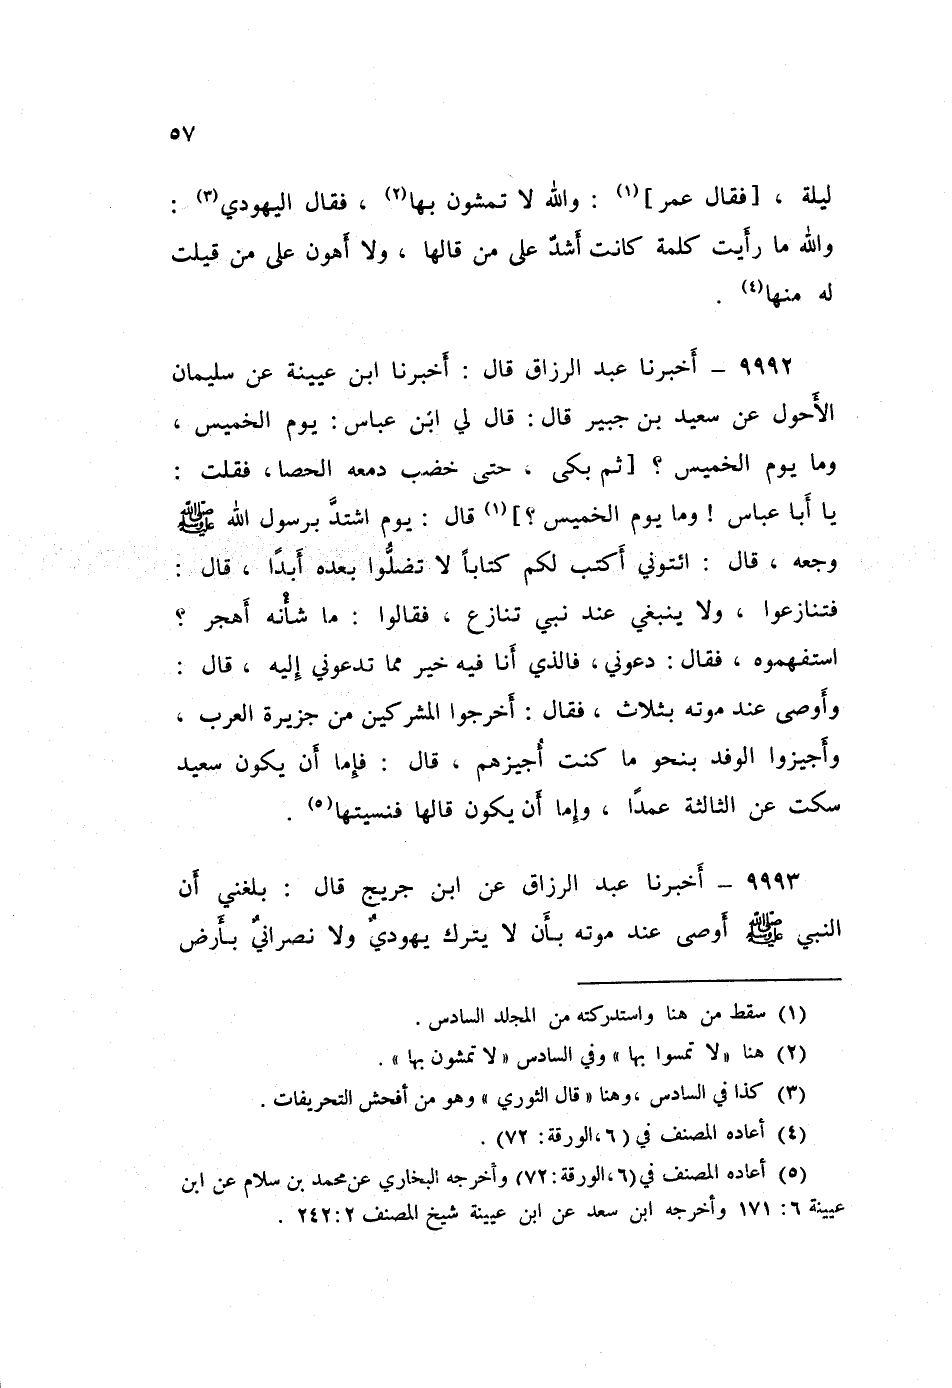 ٥٧
ليلة ، [فقال عمر](١) : والله لا تمشون بها(٢) ، فقال اليهودي(٣) :
والله ما رأَيت كلمة كانت أَشدّ على من قالها ، ولا أَهون على من قيلت
له منها(٤) .
٩٩٩٢ – أَخبرنا عبد الرزاق قال : أَخبرنا ابن عيينة عن سليمان
الأَحول عن سعيد بن جبير قال : قال لي ابن عباس : يوم الخميس ،
وما يوم الخميس ؟ [ثم بكى ، حتى خضب دمعه الحصا، فقلت :
يا أَبا عباس ! وما يوم الخميس ؟](١) قال : يوم اشتدَّ برسول الله ﷺ
وجعه ، قال : ائتوني أَكتب لكم كتاباً لا تضلُّوا بعده أَبدًا ، قال :
فتنازعوا ، ولا ينبغي عند نبي تنازع ، فقالوا : ما شأْنه أَهجر ؟
استفهموه ، فقال : دعوني ، فالذي أَنا فيه خير مما تدعوني إليه ، قال :
وأَوصى عند موته بثلاث ، فقال : أَخرجوا المشركين من جزيرة العرب ،
وأَجيزوا الوفد بنحو ما كنت أُجيزهم ، قال : فإما أَن يكون سعيد
سكت عن الثالثة عمدًا ، وإما أَن يكون قالها فنسيتها(٥) .
٩٩٩٣ – أَخبرنا عبد الرزاق عن ابن جريج قال : بلغني أَن
النبي ﷺ أَوصى عند موته بأَن لا يترك يهوديٌ ولا نصرانيٌ بأَرض
(١) سقط من هنا واستدركته من المجلد السادس .
(٢) هنا «لا تمسوا بها» وفي السادس «لا تمشون بها» .
(٣) كذا في السادس ، وهنا «قال الثوري» وهو من أفحش التحريفات .
(٤) أعاده المصنف في (٦،الورقة: ٧٢) .
(٥) أعاده المصنف في (٦،الورقة:٧٢) وأخرجه البخاري عن محمد بن سلام عن ابن
عيينة ٦: ١٧١ وأخرجه ابن سعد عن ابن عيينة شيخ المصنف ٢:٢٤٢ .